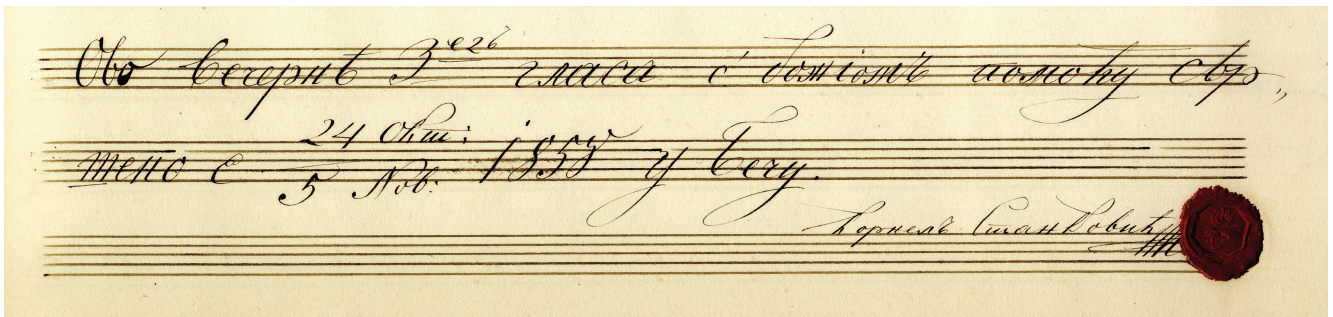 Ово вечернѣ 3егъ гласа с' божіомъ помоћу свр„
шено є 24 Окт: / 5 Нов: 1858 у Бечу.
Корнелъ Станковић